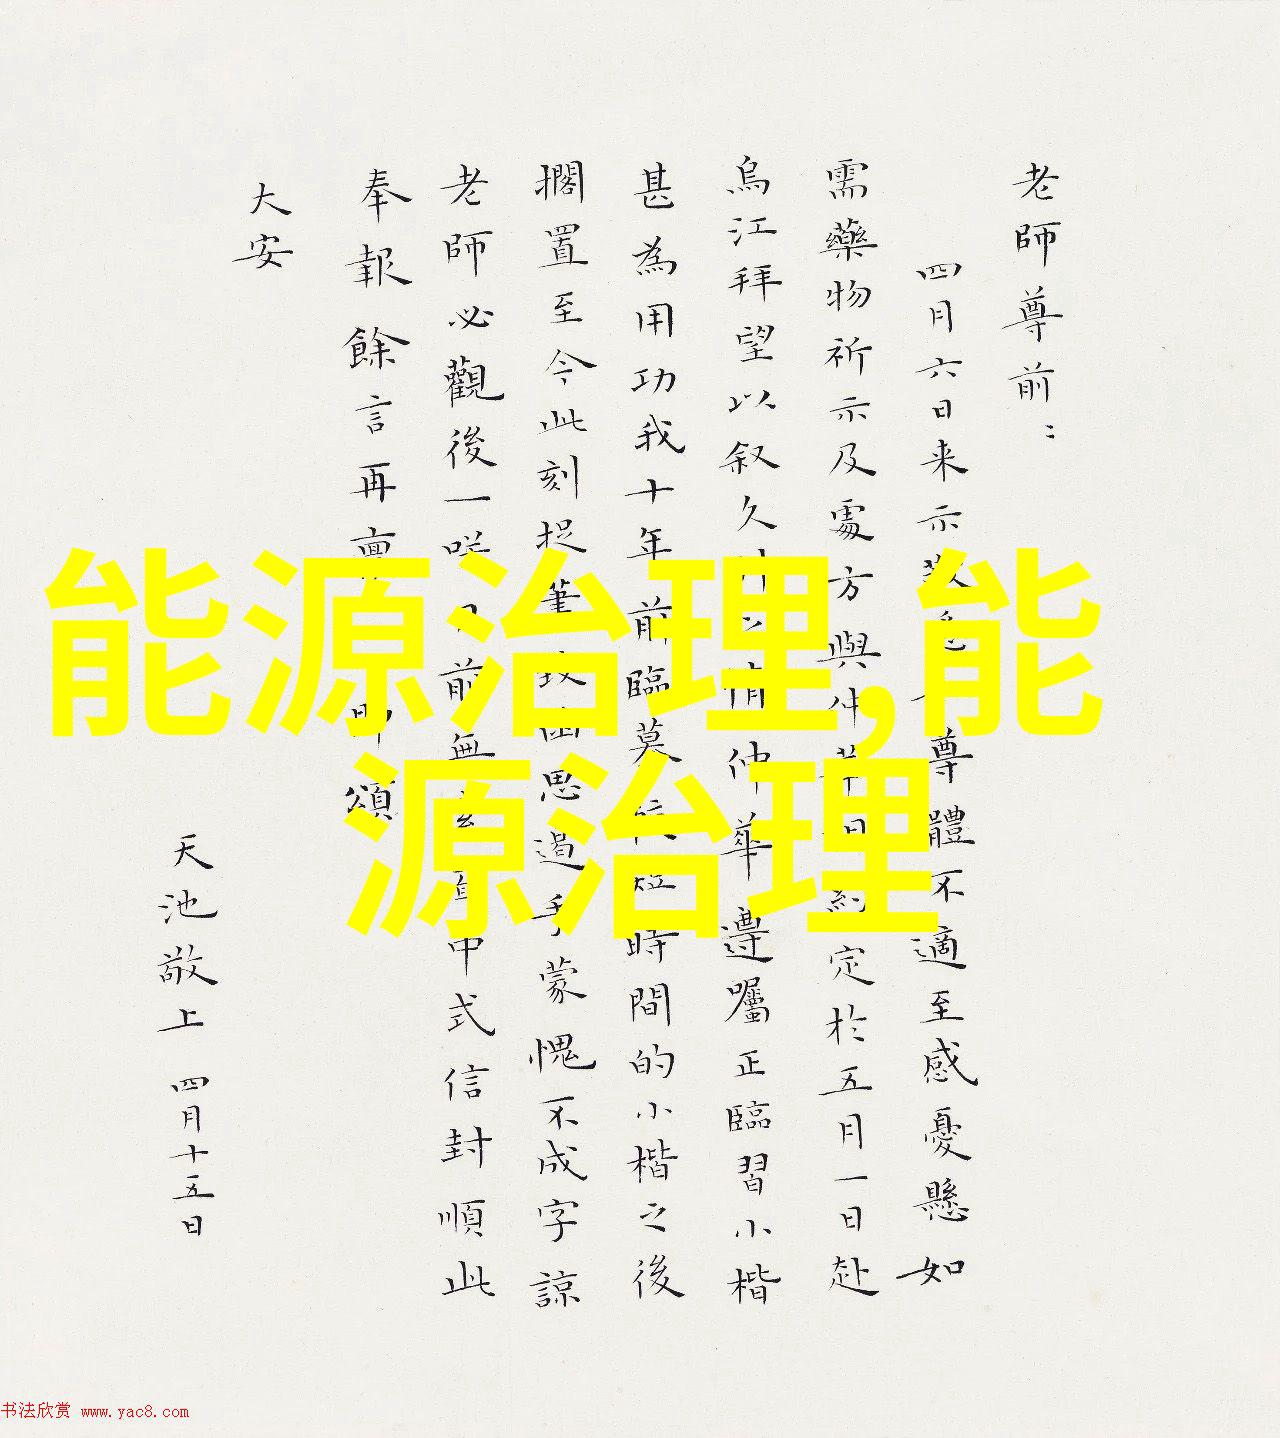 老師尊前：
四月六日来示敬悉尊體不適至感憂懸如
需藥物祈示及處方與仲華相約定於五月一日赴
烏江拜望以叙久别之情仲華遵囑正臨習小楷
甚為用功我十年前臨莫短時間的小楷之後
擱置至今此刻捉筆思過手蒙愧不成字諒
老師必觀後一咲前無中式信封順此
奉報餘言再稟即頌
大安
天池敬上 四月十五日
能源治理,能
源治理
书法欣赏 www.yac8.com